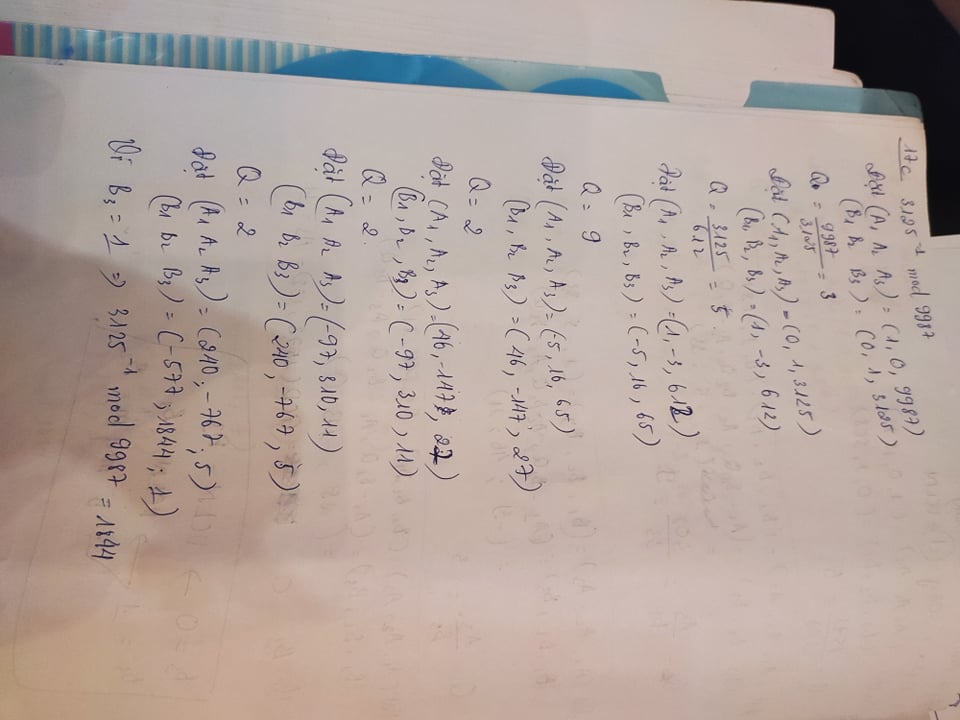 17c 3125⁻¹ mod 9987
Đặt (A₁ A₂ A₃) = (1, 0, 9987)
(B₁ B₂ B₃) = (0, 1, 3125)
Q = 9987/3125 = 3
Đặt (A₁, A₂, A₃) = (0, 1, 3125)
(B₁, B₂, B₃) = (1, -3, 612)
Q = 3125/612 = 5
Đặt (A₁, A₂, A₃) = (1, -3, 612)
(B₁, B₂, B₃) = (-5, 16, 65)
Q = 9
Đặt (A₁, A₂, A₃) = (-5, 16, 65)
(B₁, B₂ B₃) = (46, -147, 27)
Q = 2
Đặt (A₁, A₂, A₃) = (46, -147, 27)
(B₁, B₂, B₃) = (-97, 310, 11)
Q = 2.
Đặt (A₁ A₂ A₃) = (-97, 310, 11)
(B₁ B₂ B₃) = (240, -767, 5)
Q = 2
Đặt (A₁ A₂ A₃) = (240; -767; 5)
(B₁ B₂ B₃) = (-577; 1844; 1)
Vì B₃ = 1 => 3125⁻¹ mod 9987 = 1844